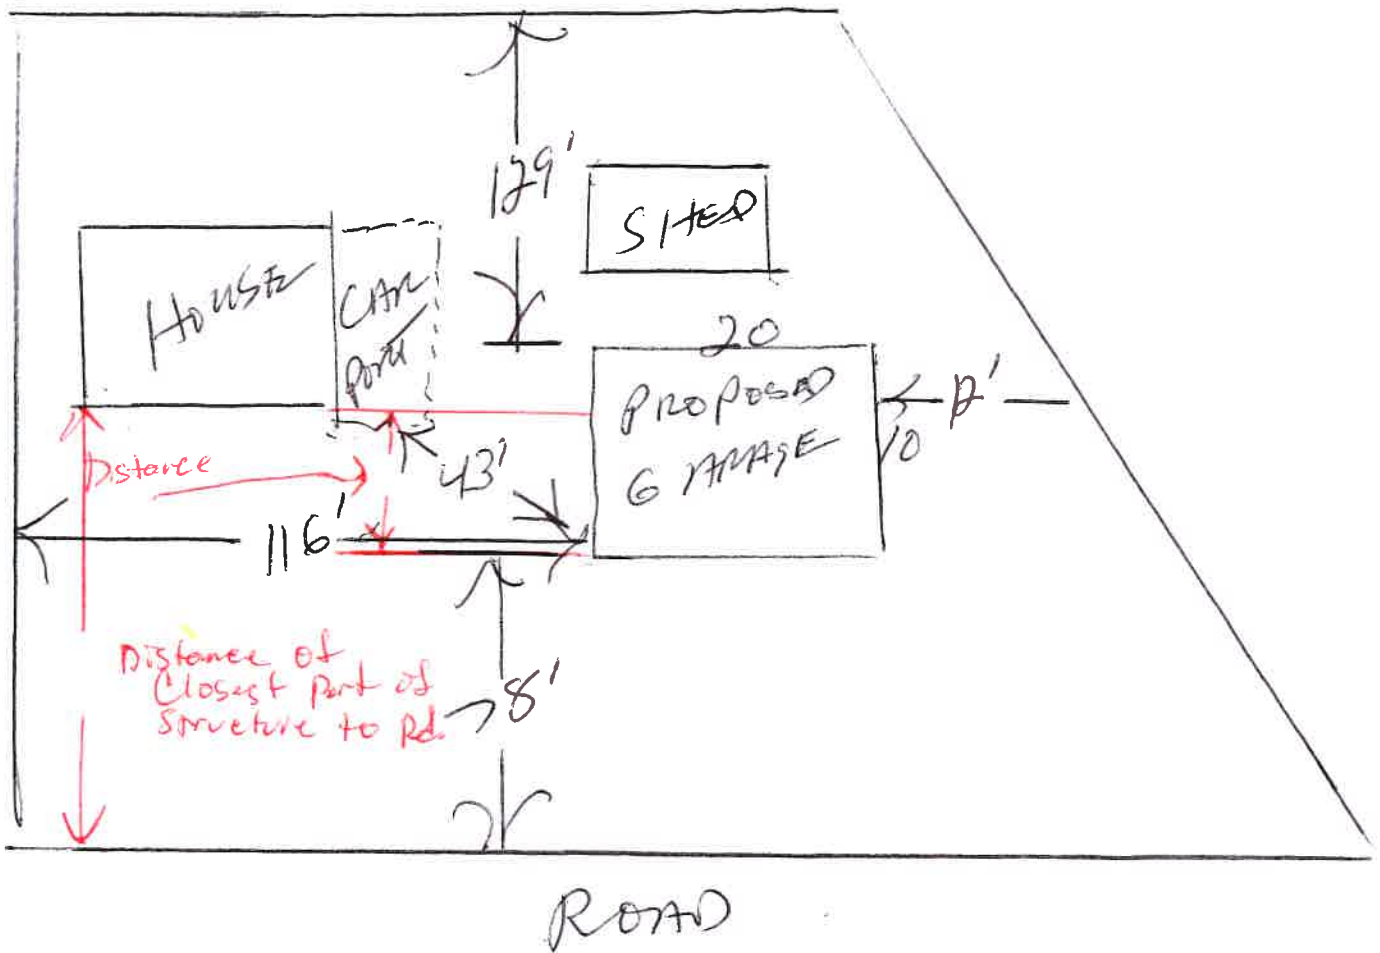 129'
SHED
HOUSE
CAR
PORT
20
PROPOSED
GARAGE
12'
10
43'
Distance
116'
Distance of
Closest Part of
Structure to Rd.
8'
ROAD